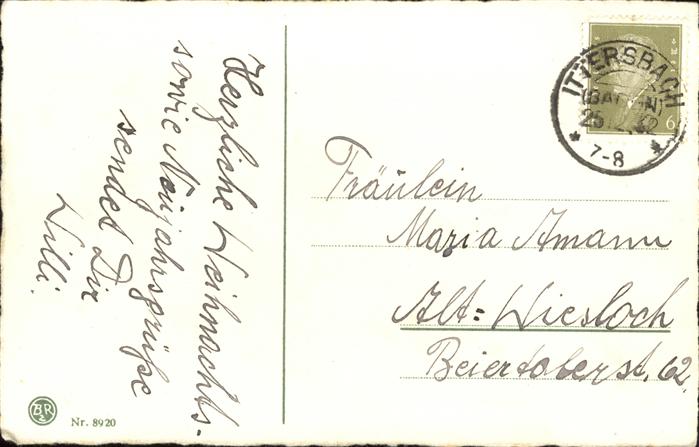 Herzliche Weihnachts-
sowie Neujahrsgrüße
sendet Dir
Willi.
Fräulein
Maria Amann
Alt=Wiesloch
Beiertalerst. 62
ITTERSBACH
(BADEN)
25
32
7-8
6
BR
Nr. 8920